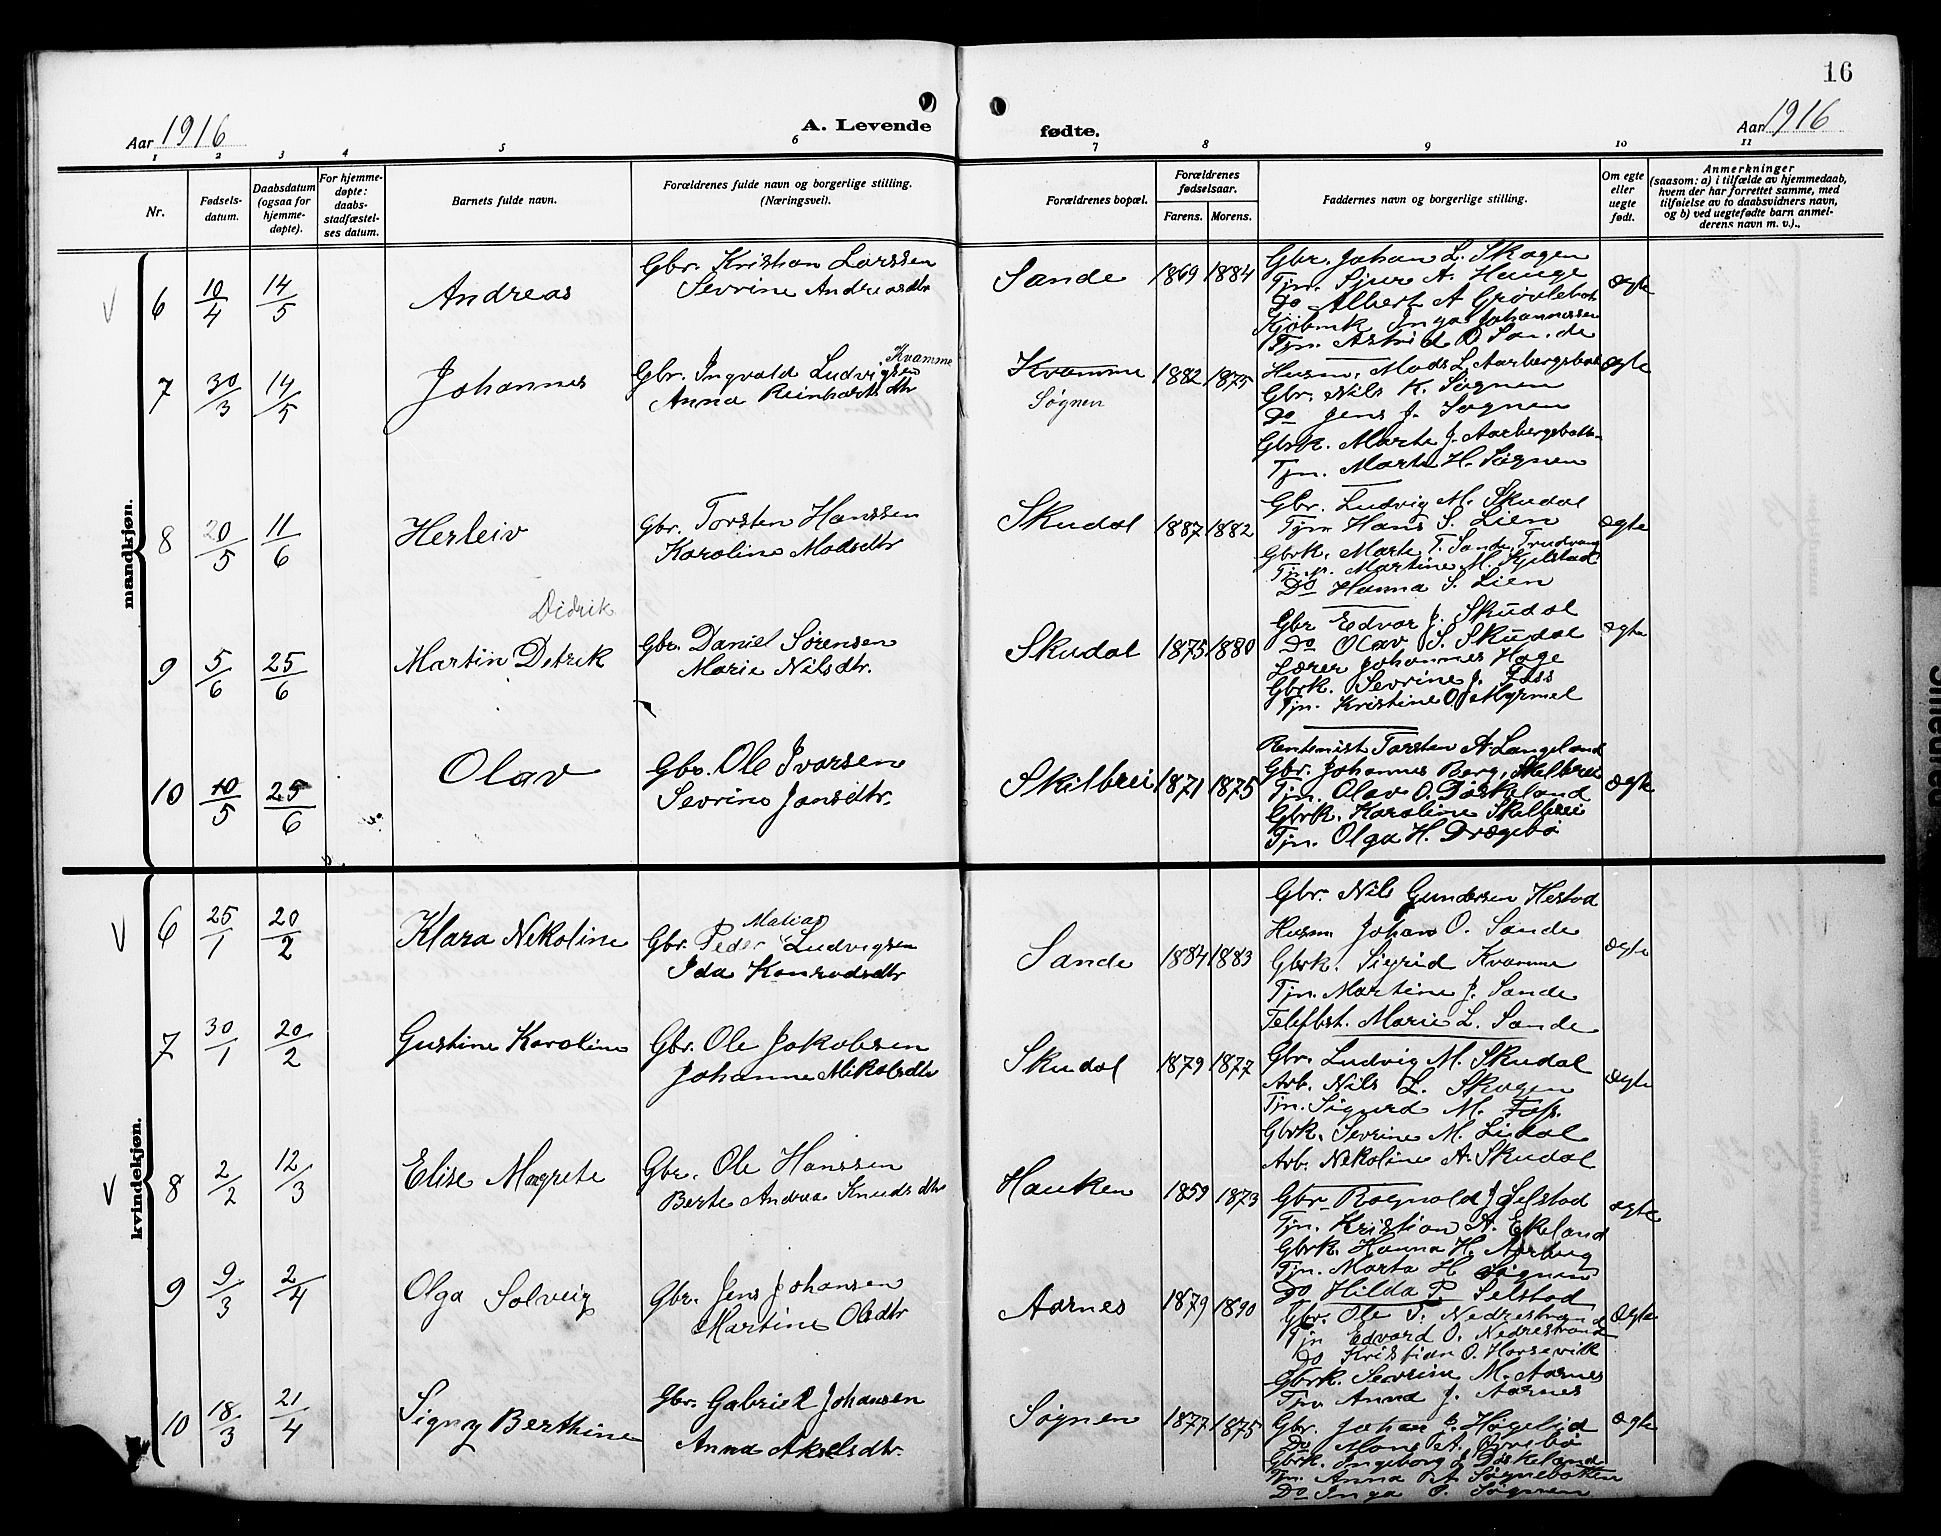 16
Aar 1916
A. Levende
fødte.
Aar 1916
1 2 3 4 5 6 7 8 9 10 11
Nr.
Fødsels-
datum.
Daabsdatum
(ogsaa for
hjemme-
døpte).
For hjemme-
døpte:
daabs-
stadfæstel-
ses datum.
Barnets fulde navn.
Forældrenes fulde navn og borgerlige stilling.
(Næringsvei).
Forældrenes bopæl.
Forældrenes
fødselsaar.
Farens. Morens.
Faddernes navn og borgerlige stilling.
Om egte
eller
uegte
født.
Anmerkninger
(saasom: a) i tilfælde av hjemmedaab,
hvem der har forrettet samme, med
tilføielse av to daabsvidners navn,
og b) ved uegtefødte barn anmel-
derens navn m. v.).
mandkjøn.
6 10/4 14/5 Andreas
Gbr. Kristian Larssen
Sevrine Andreasdtr
Sande 1869 1884
Gbr. Johan L. Skogen
Tjn. Sjur A. Hauge
Do Albert A Grøvlebot
Kjøbmk Inga Johannessen
Tjn. Astrid O Sande
ægte
7 30/3 14/5 Johannes
Kvamme
Gbr. Ingvald Ludvigsen
Anna Reinhartsdtr
Kvamme
Søgnen
1882 1875
Husm. Mads L. Aarbergsbot
Gbr. Nils K. Søgnen
Do Jens J. Søgnen
Gbrk. Marte J. Aarbergsbotn
Tjn. Marta H. Søgnen
ægte
8 20/5 11/6 Herleiv
Gbr. Torsten Hanssen
Karoline Madsdtr
Skudal 1887 1882
Gbr. Ludvig M. Skudal
Tjn. Hans S. Lien
Gbrk. Marte T. Sande, Trudvang
Tjn. Martine M. Kjelstad
Do Hanna S. Lien
ægte
Didrik
9 5/6 25/6 Martin Detrik
Gbr. Daniel Sørensen
Marie Nilsdtr.
Skudal 1875 1880
Gbr Edvar J. Skudal
Do Olav S. Skudal
Lærer Johannes Hage
Gbrk. Sevrine J. Foss
Tjn. Kristine O. Myrmel
ægte
10 10/5 25/6 Olav
Gbr. Ole Ivarsen
Sevrine Jonsdtr.
Skilbrei 1871 1875
Rentenist Torsten A. Langeland
Gbr. Johannes Berg, Skilbrei
Tjn. Olav O. Døskeland
Gbrk. Karoline Skilbrei
Tjn. Olga H. Drægebø
ægte
kvindekjøn.
6 25/1 20/2 Klara Nikoline
Matias
Gbr. Peder Ludvigsen
Ida Konradsdtr
Sande 1884 1883
Gbr. Nils Gundersen Hestad
Husm Johan O. Sande
Gbrk. Sigrid Kvamme
Tjn. Martine J. Sande
Telefbst. Marie L. Sande
ægte
7 30/1 20/2 Gustine Karoline
Gbr. Ole Jakobsen
Johanne Mikalsdtr
Skudal 1879 1877
Gbr. Ludvig M. Skudal
Arb. Nils L. Skogen
Tjn. Sigurd M. Foss.
Gbrk. Sevrine M. Lidal
Arb. Nikoline A. Skudal
ægte
8 2/2 12/3 Elise Magrete
Gbr. Ole Hanssen
Berte Andrea Knudsdtr
Hauken 1859 1873
Gbr Ragnvald J Selstad
Tjn. Kristian A. Ekeland
Gbrk. Hanna H. Aarberg
Tjn. Marta H Søgnen
Do Hilda P. Selstad
ægte
9 9/3 2/4 Olga Solveig
Gbr. Jens Johansen
Martine Olsdtr
Aarnes 1879 1890
Gbr. Ole T. Nedrestrand
Tjn Edvard O. Nedrestrand
Do Kristian O. Horsevik
Gbrk. Sevrine M. Aarnes
Tjn. Anna J. Aarnes
ægte
10 18/3 21/4 Signy Berthine
Gbr. Gabriel Johansen
Anna Akselsdtr.
Søgnen 1877 1875
Gbr. Johan P. Høgelid
Do Mons A. Øvrebø
Gbrk. Ingeborg J. Døskeland
Tjn. Anna A Søgnebotten
Do Inga O. Søgnen
ægte